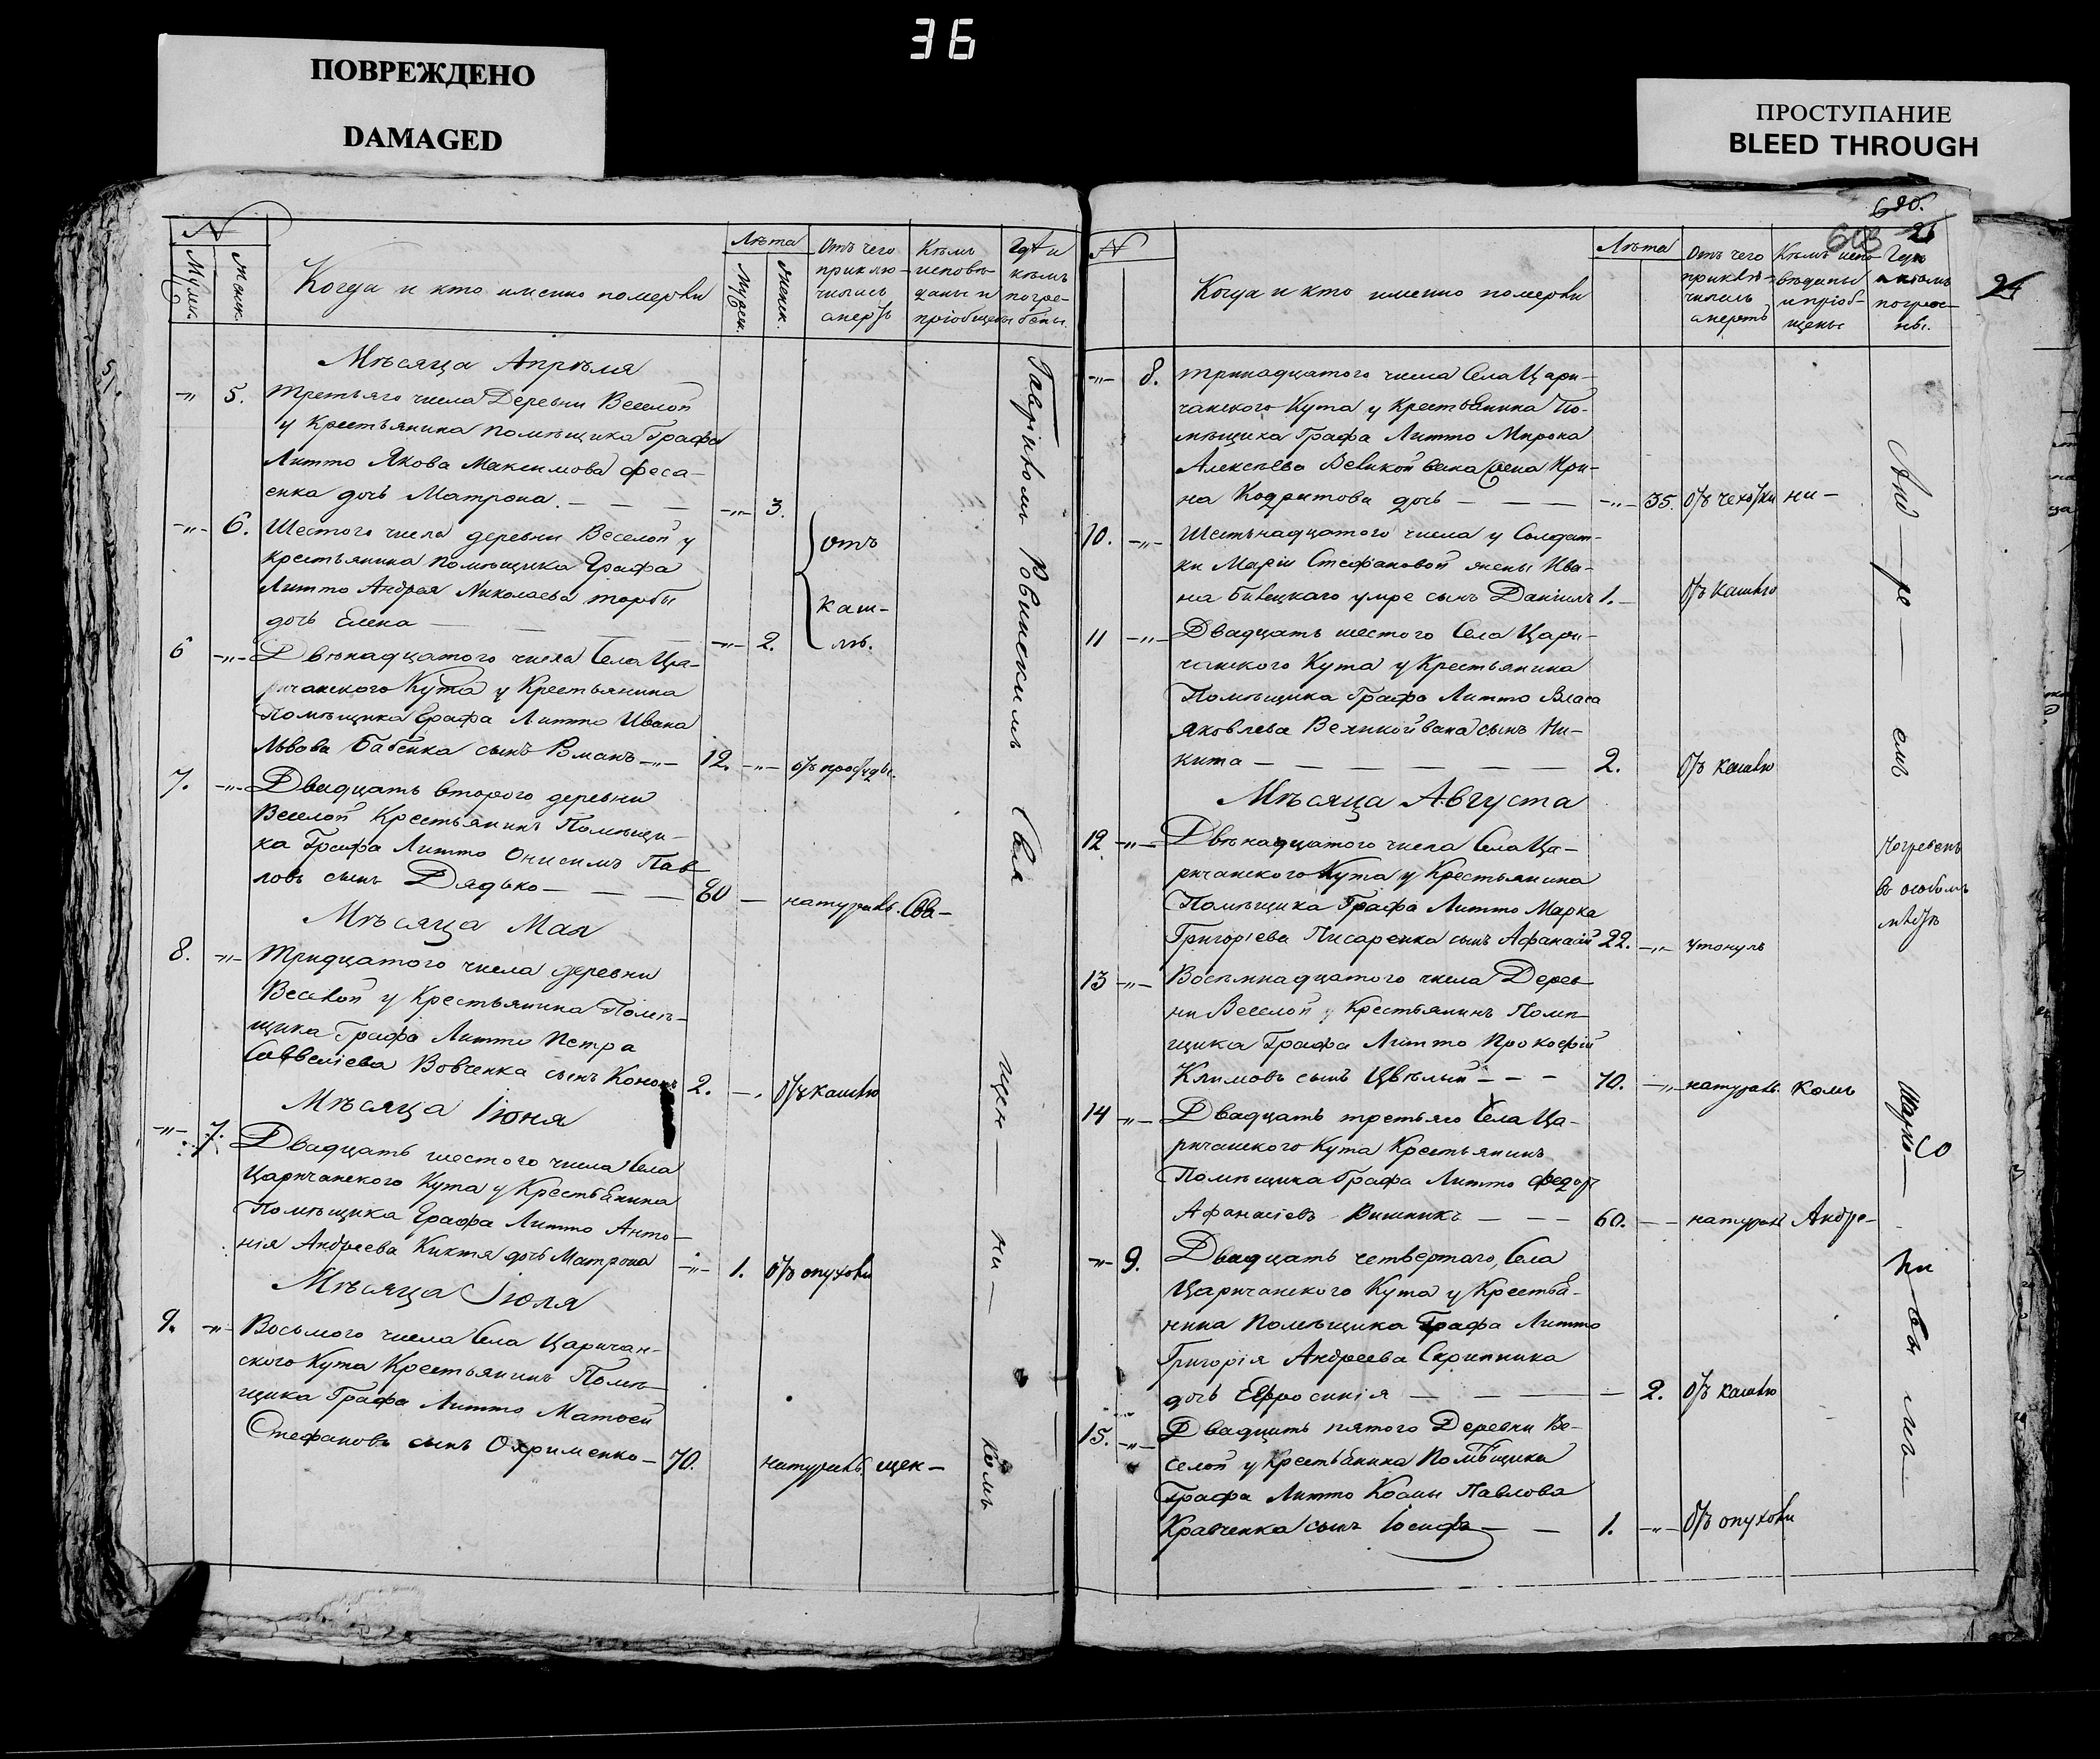 36
ПОВРЕЖДЕНО
DAMAGED
ПРОСТУПАНИЕ
BLEED THROUGH
№
Мужеск.
Женск.
Когда и кто именно померли
Лѣта
Мужеск.
Женск.
Отъ чего
приклю-
чилась
смерть
Кѣмъ
исповѣ-
даны и
пріобщены
Гдѣ и
кѣмъ
погре-
бены.
Мѣсяца Апрѣля
-"- 5. Третьяго числа Деревни Веселой
у Крестьянина помѣщика Графа
Литто Якова Максимова Феса-
енка дочь Матрона. - - - -"- 3.
-"- 6. Шестого числа деревни Веселой у
крестьянина помѣщика Графа
Литто Андрея Николаева Торбы
дочь Елена - - - -"- 2.
отъ
каш-
лѣ.
6 -"- Двѣнадцатого числа Села Ца-
ричанского Кута у Крестьянина
Помѣщика Графа Литто Ивана
Львова Бабенка сынъ Романъ -"- 12. -"- отъ простуды.
7. -"- Двадцать второго деревни
Веселой Крестьянинъ Помѣщи-
ка Графа Литто Онисимъ Пав
ловъ сынъ Дядько - - - 80 - натуральн. Свя-
Мѣсяца Мая
8. -"- Тридцатого числа деревни
Веселой у Крестьянина Помѣ-
щика Графа Литто Петра
Савеліева Вовченка сынъ Кононъ 2. -"- отъ кашлю
Мѣсяца Іюня
-"- 7. Двадцать шестого числа Села
Царичанского Кута у Крестьянина
Помѣщика Графа Литто Анто-
нія Андреева Киктя дочь Матрона -"- 1. отъ опухоли
Мѣсяца Іюля
9. -"- Восьмого числа Села Царичан-
ского Кута Крестьянинъ Помѣ-
щика Графа Литто Матвей
Стефановъ сынъ Охрименко - 70. натуральн. щен-
Гавріиломъ Ровинскимъ Свя
щен - ни - комъ
690.
603
24
№
Когда и кто именно померли
Лѣта
Отъ чего
приклю-
чилась
смерть
Кѣмъ испо-
вѣданы
и пріоб-
щены
Гдѣ
и кѣмъ
погребе-
ны.
-"- 8. Тринадцатого числа Села Цари-
чанского Кута у Крестьянина По-
мѣщика Графа Литто Мирона
Алексѣева Великой Вана жена Ири-
на Кодратова дочь - - - -"- 35. отъ чехотки ни-
10. -"- Шестьнадцатого числа у Солдат-
ки Маріи Стефановой жены Ива-
на Билецкаго умре сынъ Даніилъ 1. - отъ кашлю
11 -"- Двадцать шестого Села Цари-
чанского Кута у Крестьянина
Помѣщика Графа Литто Власа
Яковлева Великойвана сынъ Ни-
кита - - - - - 2. отъ кашлю
Мѣсяца Августа
12 -"- Двѣнадцатого числа Села Ца-
ричанского Кута у Крестьянина
Помѣщика Графа Литто Марка
Григоріева Писаренка сынъ Афанасій 22. -"- утонулъ
Погребенъ
въ особомъ
мѣстѣ
13 -"- Восемнадцатого числа Дерев
ни Веселой у Крестьянинъ Помѣ
щика Графа Литто Прокофій
Климовъ сынъ Цвѣлый - - - 70. -"- натуральн. комъ
14 -"- Двадцать третьяго Села Ца-
ричанского Кута Крестьянинъ
Помѣщика Графа Литто Федоръ
Афанасіевъ Вишникъ - - - 60. - - натуральн Андре-
-"- 9. Двадцать четвертаго, Села
Царичанского Кута у Крестья-
нина Помѣщика Графа Литто
Григорія Андреева Скрипника
дочь Евфросинія - - - - 2. отъ кашлю
15. -"- Двадцать пятого Деревни Ве-
селой у Крестьянина Помѣщика
Графа Литто Космы Павлова
Кравченка сынъ Іосифъ - - 1. -"- отъ опухоли
Анд - ре - емъ